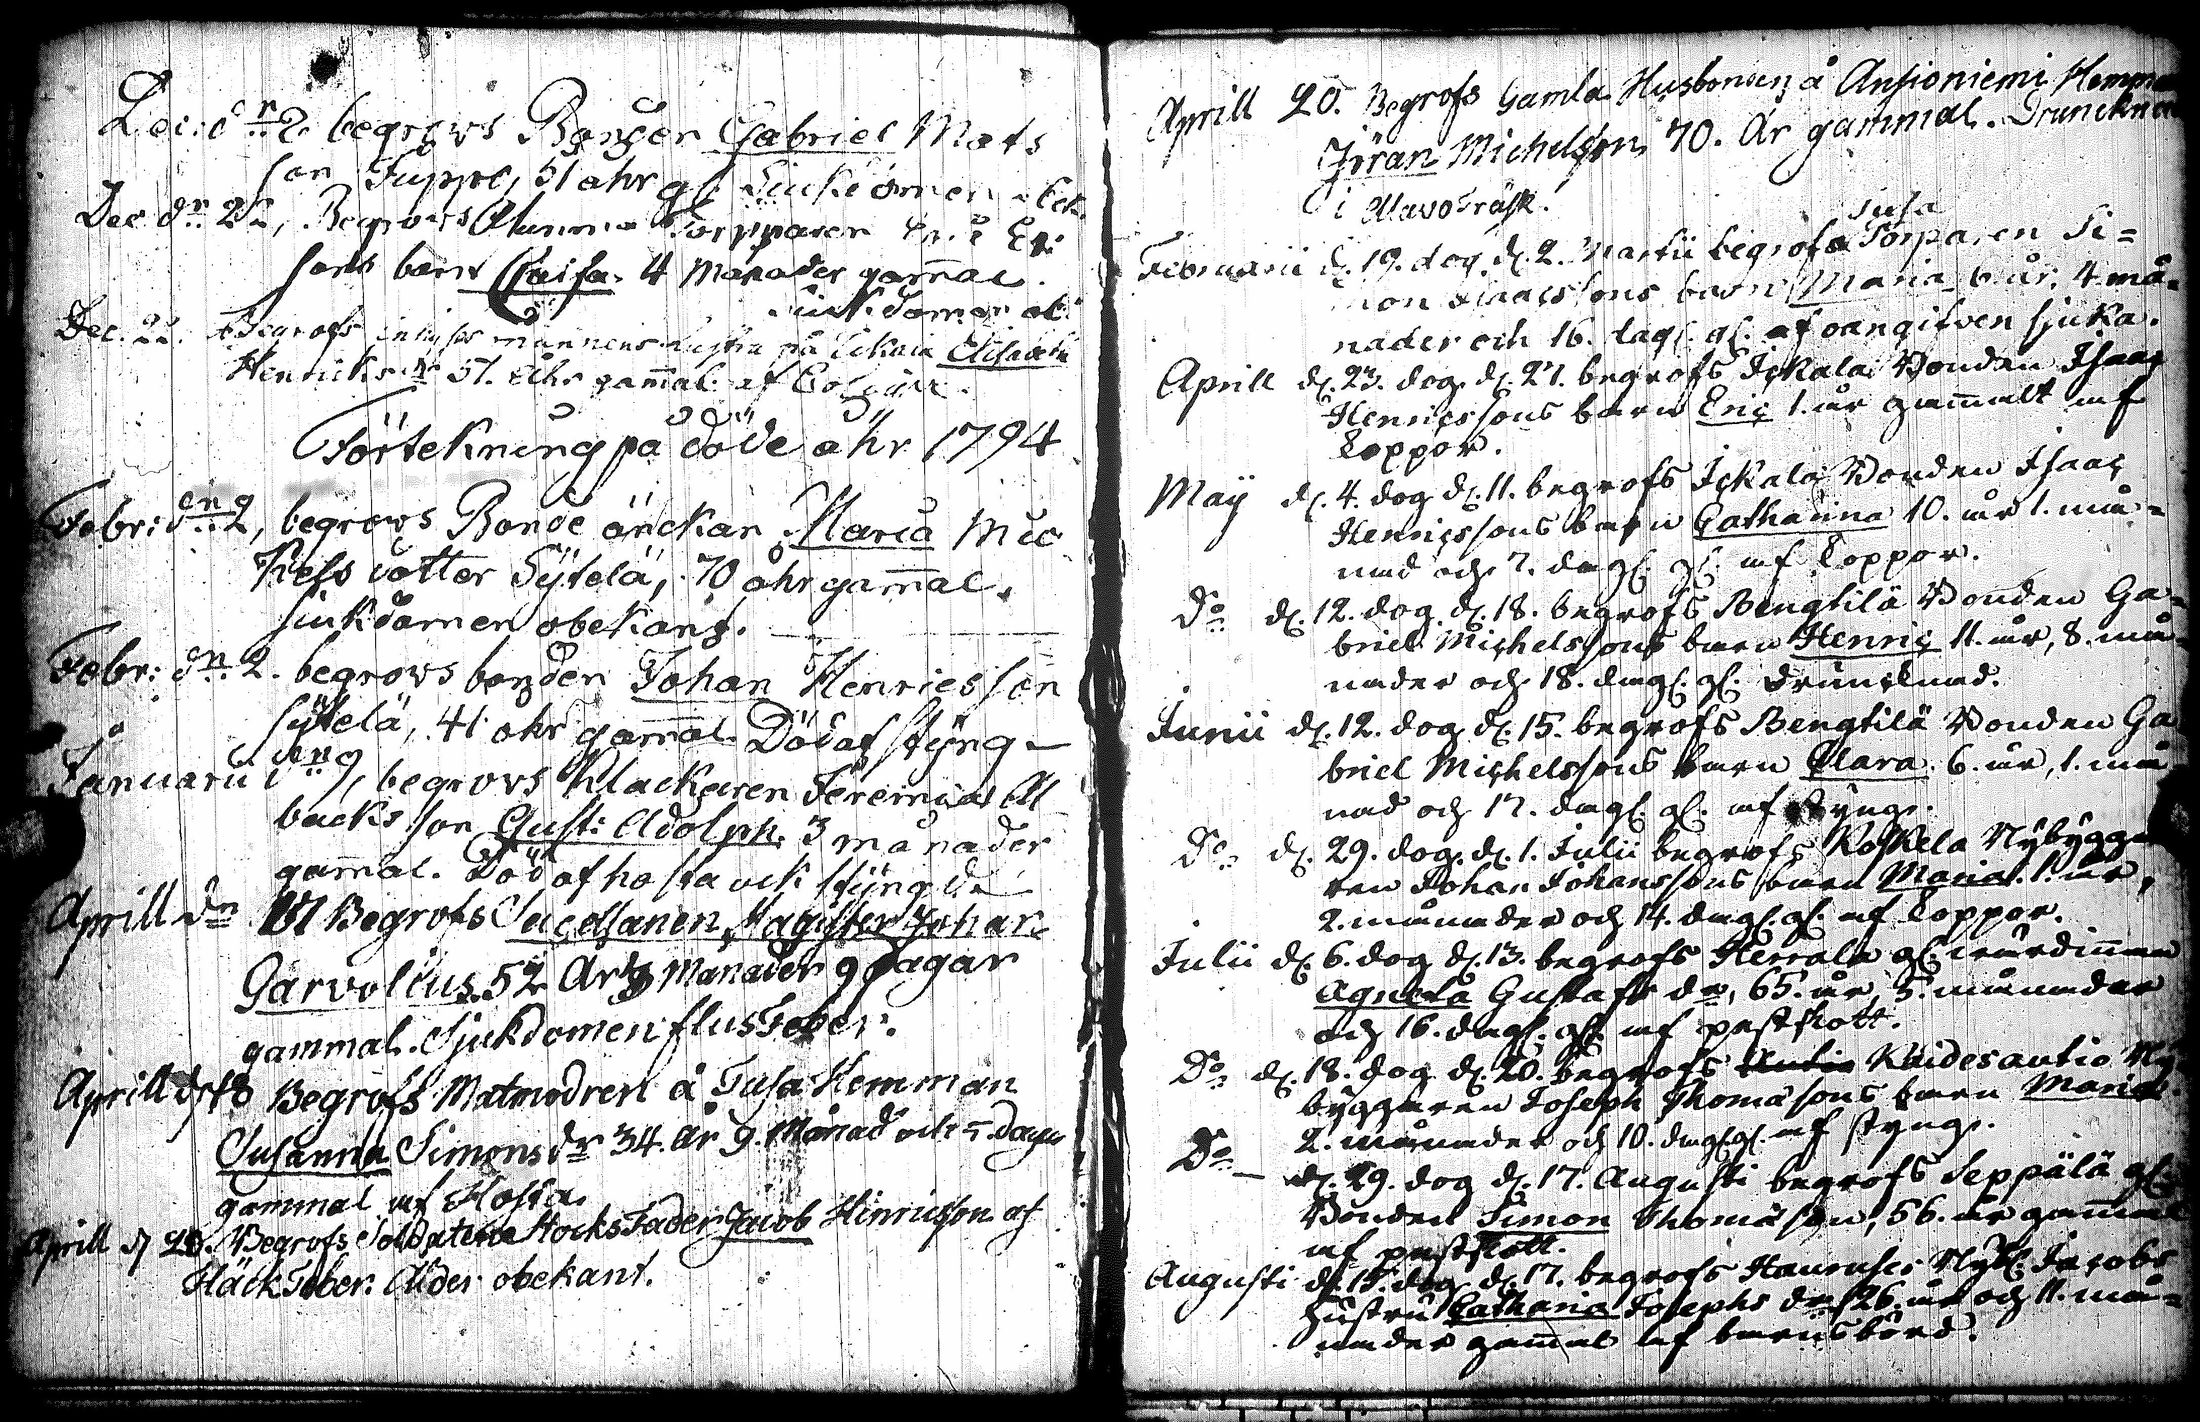 Dec: dn 2 begrovs Bonden Gabriel Mats
son Tuppo, 51 ahr gl. Siukdomen obek.
Dec dn 22, Begrovs Torpparen
sons barn Caisa 4 Månader gam̄al.
siukdomen ob:
Dec. 22. Begrofs hustru på Elisabeth
Henricks dr 57. åhr gam̄al af
Förtekning på döde åhr 1794
Febr: dn 2, begrovs Bonde änckan Maria Mic
kels dotter Sÿtelä, 70 åhr gam̄al,
siukdamen obekant.
Febr: dn 2. begrovs bonden Johan Henricsson
Sÿtelä, 41 ahr gam̄al Död af stÿng
Januarii dn 9, begrovs Klackaren Jeremias Al
backs son Gust: Adolph. 3 månader
gam̄al. Död af hosta ock stÿng
Aprill dn Begrofs Sacellanen, Magister Johan
Garvolius. 52 År 3 Månader 9 Dagar
gammal. Sjukdomen flussfeber.
Aprill d. 18 Begrofs Matmodren å Tusa Hemman
Susanna Simons dr 34. År 9. Månad och 5. Dagar
gammal af Hosta.
Aprill d. 20. Begrofs Soldatens Stocks Fader Jacob Hinricsson af
Fläckfeber. Ålder obekant.
Aprill 20. Begrofs Gamla Husbonden å Ansioniemi Hemman
Jöran Michelsson 70. År gammal. Druncknad
i Alavoträsk.
Tusa
Februarii d. 19. dog d. 2. Martii begrofs Torparen Si=
mon Isaacssons barn Maria 6 år, 4 må=
nader och 16. dag. gl. af oangifven sjuka.
Aprill d. 23. dog d. 27. begrofs Ickala Bonden Isaac
Henricssons barn Eric 1. år gam̄alt af
Koppor.
Maÿ d. 4. dog d. 11. begrofs Ickala Bonden Isaac
Henricssons barn Catharina 10. år 1. må=
nad och 7. dag. gl. af Koppor.
Do d. 12. dog d. 18. begrofs Bengtilä Bonden Ga=
briel Michelssons barn Henric 11. år, 8. må=
nader och 18. dag. gl. drunknad.
Junii d. 12. dog d. 15. begrofs Bengtilä Bonden Ga
briel Michelssons barn Clara 6. år, 1. må
nad och 17. dag. gl. af styng.
Do d. 29. dog d. 1. Julii begrofs Koskela Nÿbygga
ren Johan Johanssons barn Maria 1. år,
2. månader och 14. dag. gl. af Koppor.
Julii d. 6. dog d. 13. begrofs Herrala gl. värdin̄an
Agneta Gustafs dr, 65. år, 5. månader
och 16. dag. gl. af
Do d. 18. dog d. 20. begrofs Kaidesautio Nÿ
byggaren Joseph Thomassons barn Maria
2. månader och 10. dag. gl. af styng.
Do d. 29. dog d. 17. Augusti begrofs Seppälä gl.
Bonden Simon Thomasson, 56. år gam̄al
af
Augusti d. 15. dog d. 17. begrofs Nÿb. Jacobs
hustru Catharina Josephs dr 26. år och 11. må=
nader gam̄al af barnsbörd.